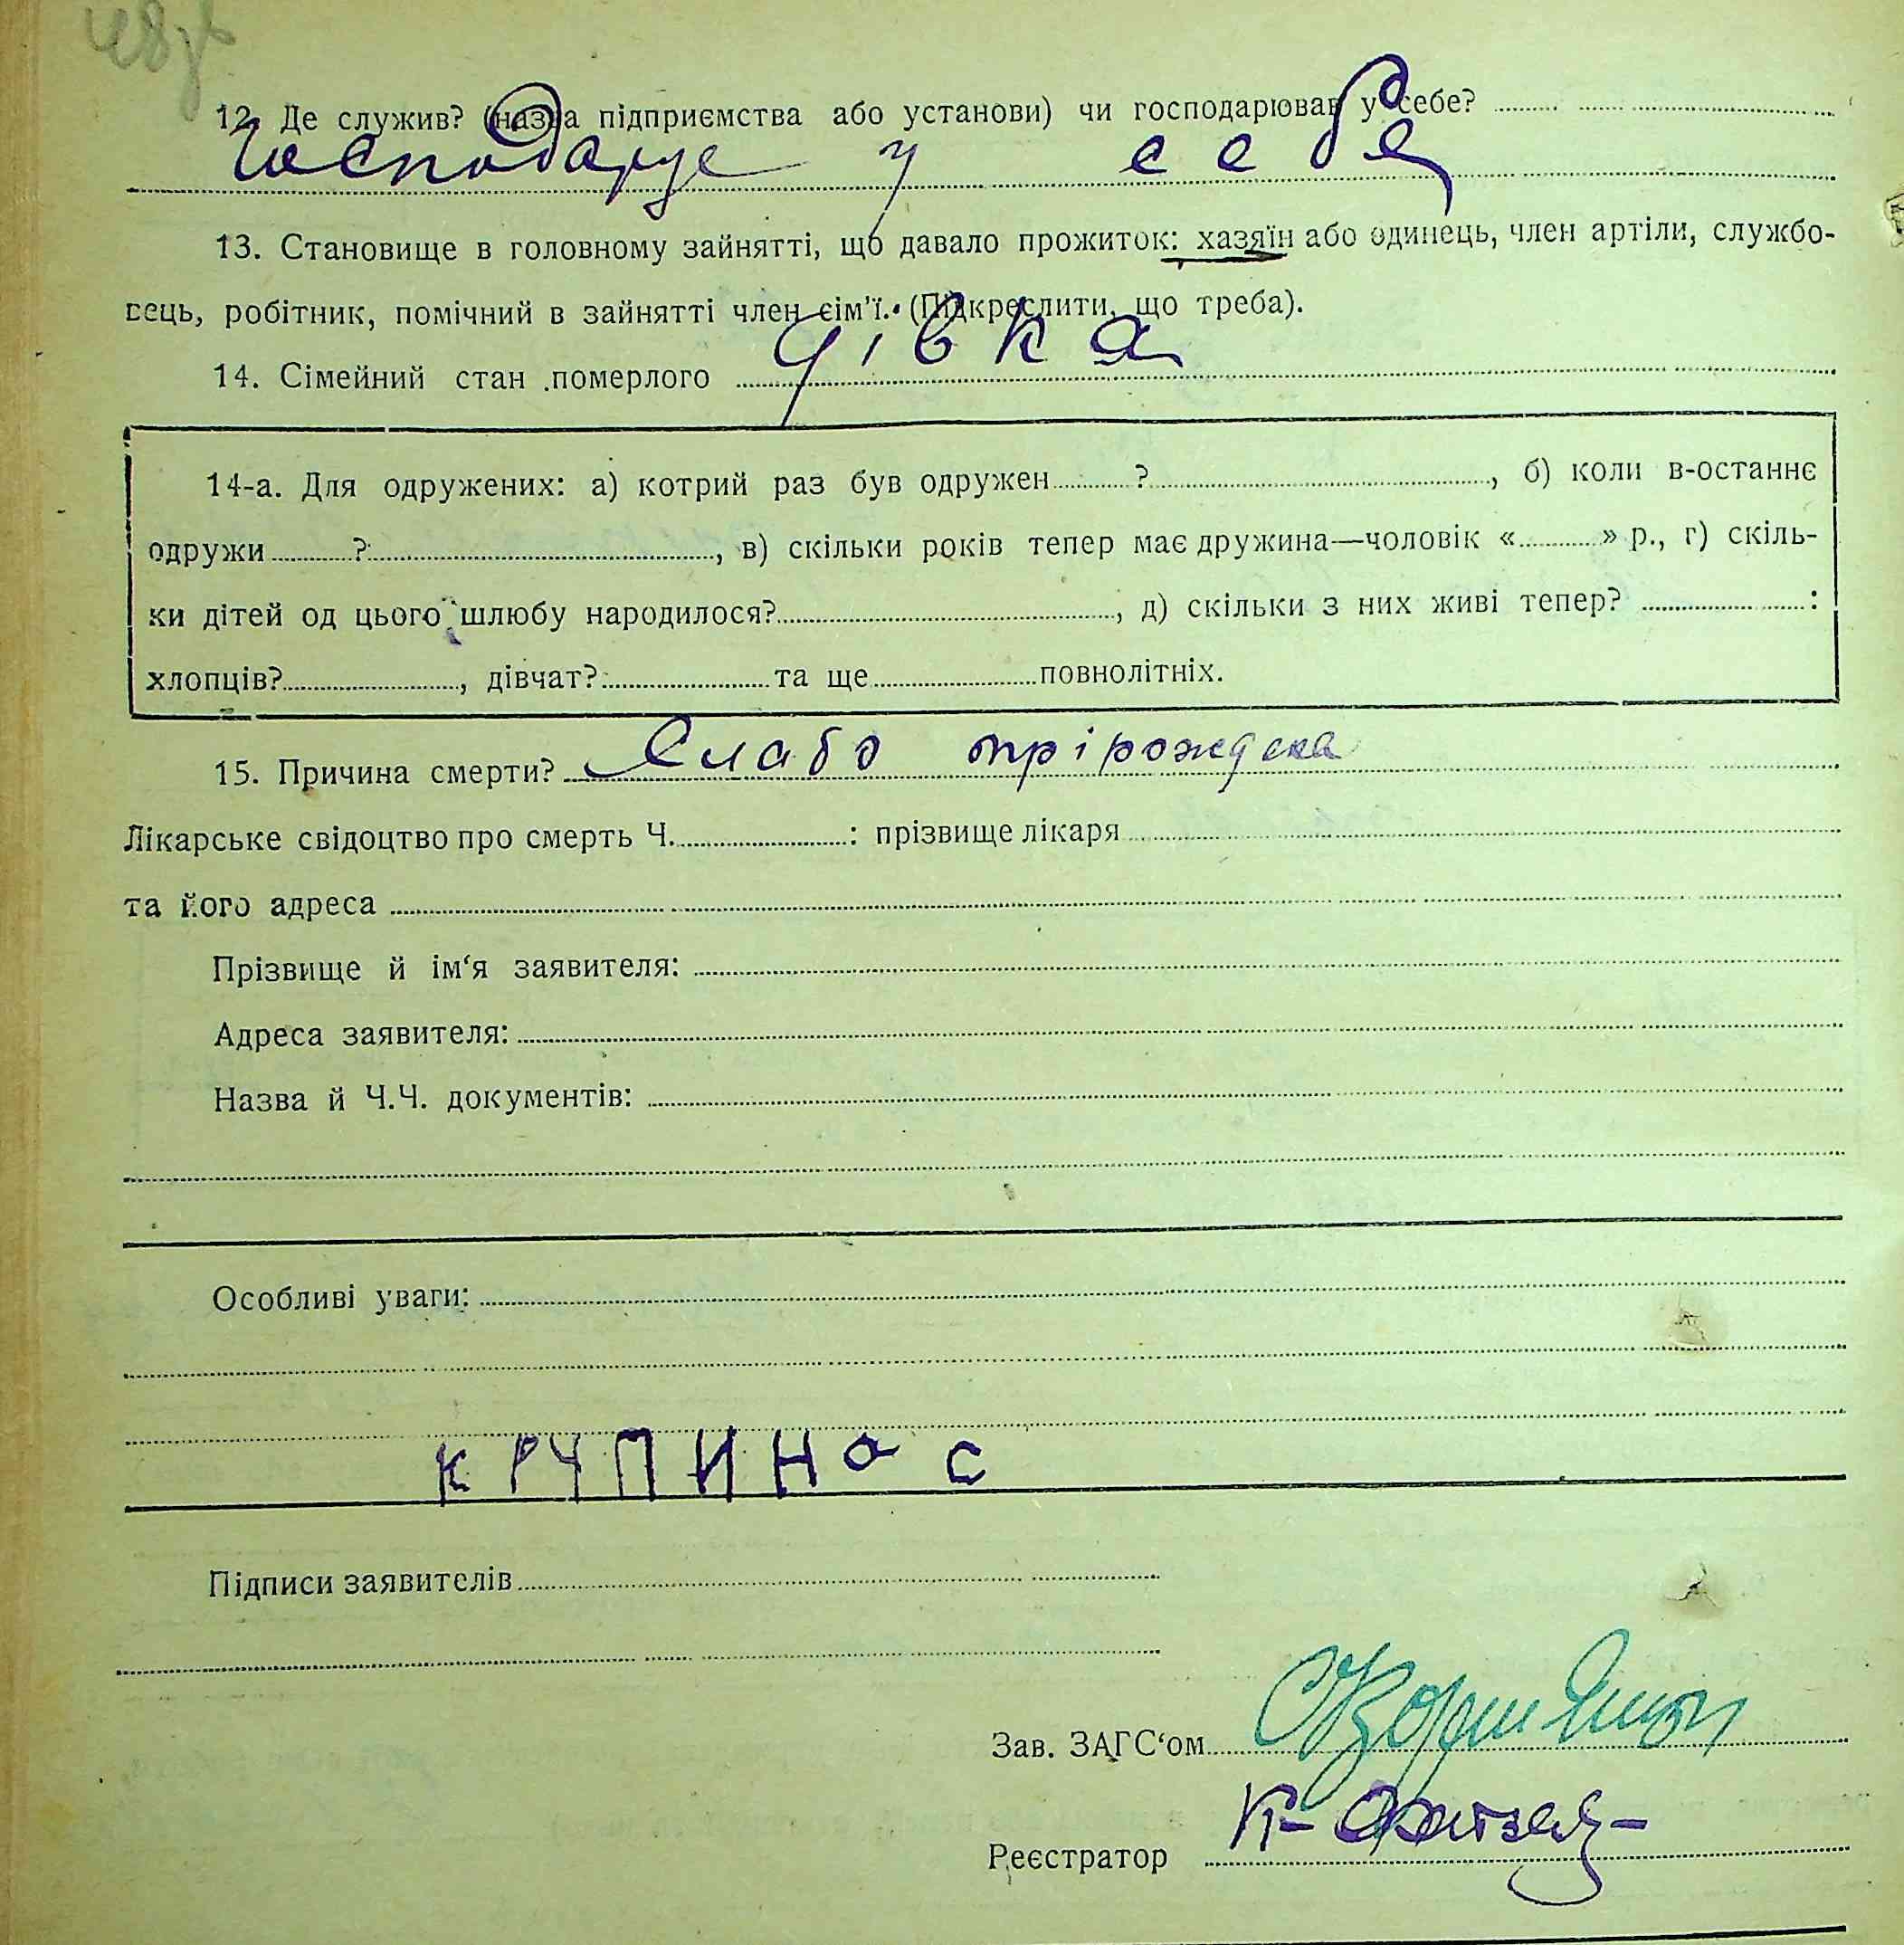 12. Де служив? (назва підприємства або установи) чи господарював у себе?
Господарує у себе
13. Становище в головному зайнятті, що давало прожиток: хазяїн або одинець, член артіли, службо-
вець, робітник, помічний в зайнятті член сім’ї. (Підкреслити, що треба).
14. Сімейний стан померлого дівка
14-а. Для одружених: а) котрий раз був одружен ?, б) коли в-останнє
одружи ?, в) скільки років тепер має дружина—чоловік « » р., г) скіль-
ки дітей од цього шлюбу народилося?, д) скільки з них живі тепер? :
хлопців?, дівчат? та ще повнолітніх.
15. Причина смерти? Слабо прірождена
Лікарське свідоцтво про смерть Ч. : прізвище лікаря
та його адреса
Прізвище й ім‘я заявителя:
Адреса заявителя:
Назва й Ч.Ч. документів:
Особливі уваги:
КРУПИНА С
Підписи заявителів
Зав. ЗАГС‘ом
Реєстратор